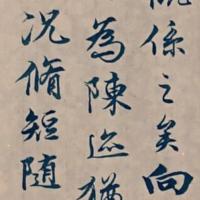 係之矣向
為陳迹猶
況脩短随